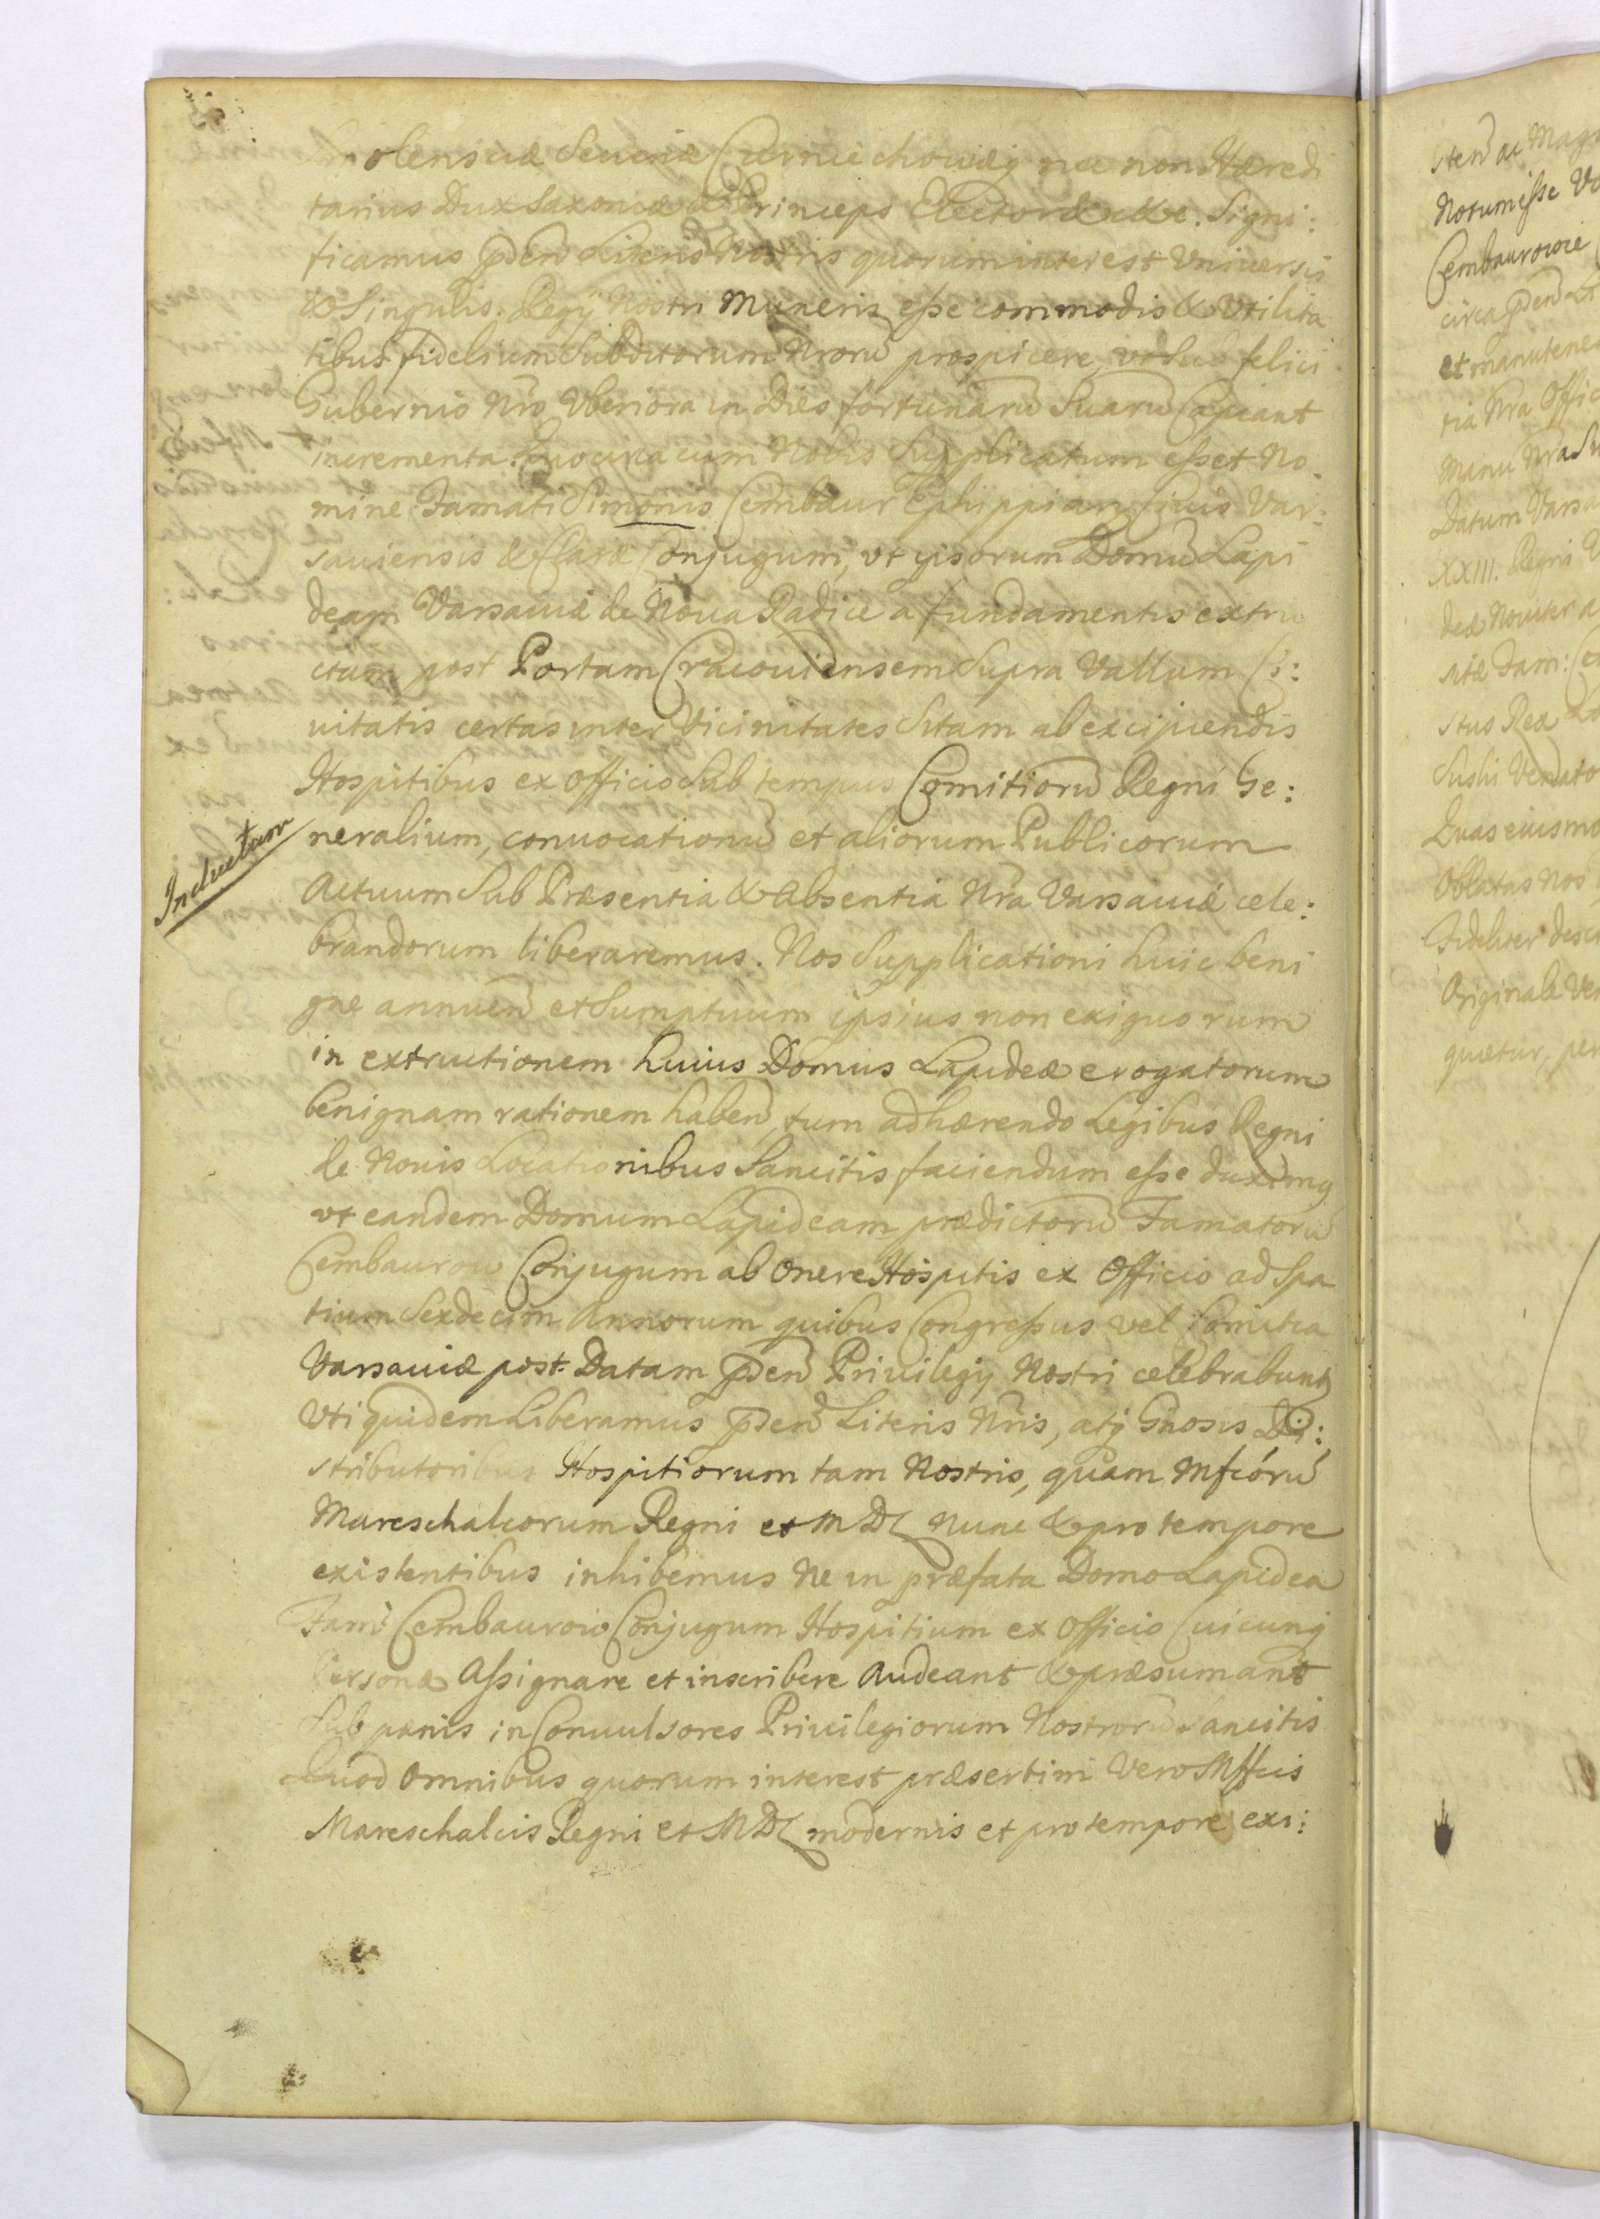 Smolensciæ Seueriæ Czerniechouiæq nec non Hæredi
tarius Dux Saxoniæ & Princeps Elector &c &c. Signi:
ficamus pñtñ Literis Nostris quorum interest Vniuersis
& Singulis. Regij Nostri Muneris esse commodis & Vtilita
tibus fidelium Subditorum Nrorũ prospicere, vt sub felici
Gubernio Nro Vberiora in Dies fortunarũ Suarũ Capiant
incrementa. Quocirca cum Nobis Supplicatum esset No
mine Famati Simonis Cembaur Ephippiarij Ciuis Var:
sauiensis & Claræ Conjugum, vt ipsorum Domũ Lapi
deam Varsauiæ de Noua Radice a fundamentis extru
ctam post Portam Cracouiensem Supra Vallum Ci:
uitatis certas inter Vicinitates Sitam ab excipiendis
Hospitibus ex officio Sub tempus Comitiorũ Regni Ge:
neralium, conuocationũ et aliorum Publicorum
Inductum
Actuum Sub Præsentia & Absentia Nrã Varsauiæ cele:
brandorum liberaremus. Nos Supplicationi huic beni
gne annuen̄ et Sumptuum ipsius non exiguorum
in extructionem huius Domus Lapideæ erogatorum
benignam rationem haben̄, tum adhærendo Legibus Regni
de Nouis Locationibus Sancitis faciendum esse duximg
vt eandem Domum Lapideam prædictorũ Famatorũ
Cembaurow Conjugum ab Onere Hospitis ex Officio ad Spa
tium Sexdecim Annorum quibus Congressus vel Comitia
Varsauiæ post Datam pñtñ Priuilegij Nostri celebrabunt
Vti quidem Liberamus pñtñ Literis Nris, atq Gnosis Di:
stributoribus Hospitiorum tam Nostris, quam Mfcórũ
Mareschalcorum Regni et MDL nunc & pro tempore
existentibus inhibemus ne in præfata Domo Lapidea
Fam̃ Cembaurow Conjugum Hospitium ex officio Cuicunq
Personæ Assignare et inscribere Audeant & præsumant
Sub pænis in Conuulsores Priuilegiorum Nostrorũ sancitis
Quod Omnibus quorum interest præsertim Vero Mffcis
Mareschalcis Regni et MDL modernis et pro tempore exi:
sten̄ ac Mag
Notum esse Vo
Cembaurowie
circa pñtñ Li
et manutene
tia Nra Offic
Manu Nra Su
Datum Varsa
XXIII. Regni
stus Rex Lo
Duas eiusmo
Oblatas Nos
Fideliter desc
Originale Ver
quætur, per